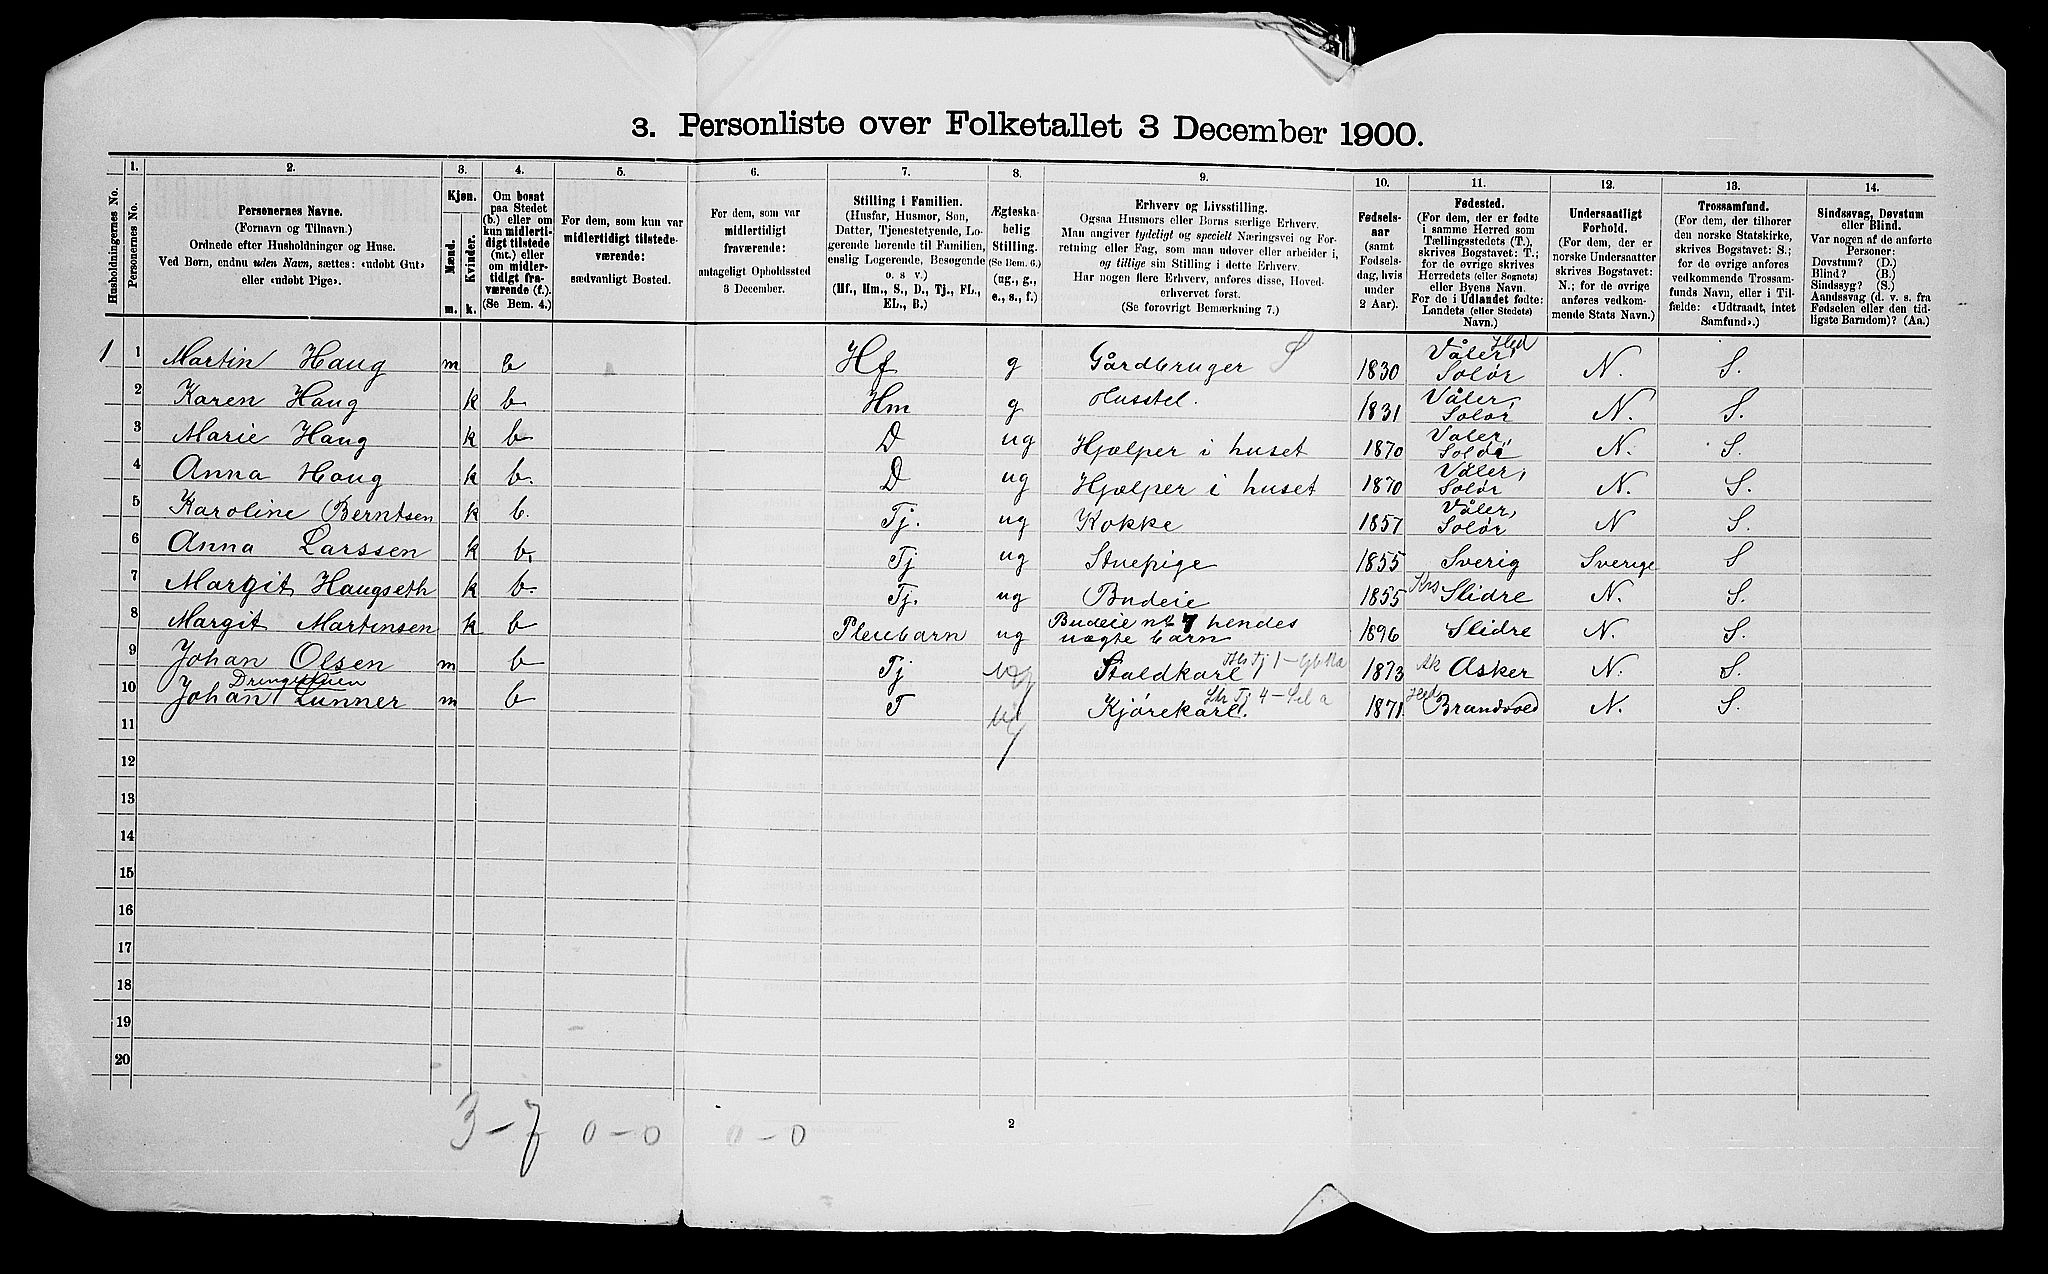 3. Personliste over Folketallet 3 December 1900.
Husholdningernes No.
1. Personernes No.
2. Personernes Navne.
(Fornavn og Tilnavn.)
Ordnede efter Husholdninger og Huse.
Ved Børn, endnu uden Navn, sættes: «udøbt Gut»
eller «udøbt Pige».
3. Kjøn.
Mænd. Kvinder.
m. k.
4. Om bosat
paa Stedet
(b.) eller om
kun midlerti-
digt tilstede
(mt.) eller
om midler-
tidigt fra-
værende (f.).
(Se Bem. 4.)
5. For dem, som kun var
midlertidigt tilstede-
værende:
sædvanligt Bosted.
6. For dem, som var
midlertidigt
fraværende:
antageligt Opholdssted
3 December.
7. Stilling i Familien.
(Husfar, Husmor, Søn,
Datter, Tjenestetyende, Lo-
gerende hørende til Familien,
enslig Logerende, Besøgende
o. s v.)
(Hf., Hm., S., D., Tj., FL.,
EL., B.)
8. Ægteska-
belig
Stilling.
(Se Bem. 6.)
(ug., g.,
e., s., f.)
9. Erhverv og Livsstilling.
Ogsaa Husmors eller Børns særlige Erhverv.
Man angiver tydeligt og specielt Næringsvei og For-
retning eller Fag, som man udøver eller arbeider i,
og tillige sin Stilling i dette Erhverv.
Har nogen flere Erhverv, anføres disse, Hoved-
erhvervet først.
(Se forøvrigt Bemærkning 7.)
10. Fødsels-
aar
(samt
Fødsels-
dag, hvis
under
2 Aar).
11. Fødested.
(For dem, der er fødte
i samme Herred som
Tællingsstedets (T.),
skrives Bogstavet: T.;
for de øvrige skrives
Herredets (eller Sognets)
eller Byens Navn.
For de i Udlandet fødte:
Landets (eller Stedets)
Navn.)
12. Undersaatligt
Forhold.
(For dem, der er
norske Undersaatter
skrives Bogstavet:
N.; for de øvrige
anføres vedkom-
mende Stats Navn.)
13. Trossamfund.
(For dem, der tilhører
den norske Statskirke,
skrives Bogstavet: S.;
for de øvrige anføres
vedkommende Trossam-
funds Navn, eller i Til-
fælde: «Udtraadt, intet
Samfund».)
14. Sindssvag, Døvstum
eller Blind.
Var nogen af de anførte
Personer:
Døvstum? (D.)
Blind? (B.)
Sindssyg? (S.)
Aandssvag (d. v. s. fra
Fødselen eller den tid-
ligste Barndom)? (Aa.)
1 1 Martin Haug m b Hf g Gårdbruger S 1830 Våler, Hed Solør N. S.
2 Karen Haug k b Hm g Husstel. 1831 Våler, Solør N. S.
3 Marie Haug k b D ug Hjælper i huset 1870 Våler, Solør N. S.
4 Anna Haug k b. D ug Hjælper i huset 1870 Våler, Solør N. S.
5 Karoline Berntsen k b. Tj. ug Kokke 1857 Våler, Solør N S.
6 Anna Larssen k b. Tj ug Stuepige 1855 Sverig Sverige S
7 Margit Haugseth k b. Tj. ug Budeie 1855 Krs Slidre N. S.
8 Margit Martinsen k b Pleiebarn ug Budeie no 7 hendes uægte barn 1896 Slidre N. S.
9 Johan Olsen m b Tj ug Staldkarl 1873 Ak Asker N. S.
10 Johan Lunner m b T ug Kjørekarl. 1871. Hed Brandvold N. S.
11
12
13
14
15
16
17
18
19
20
3-7 0-0 0-0
2